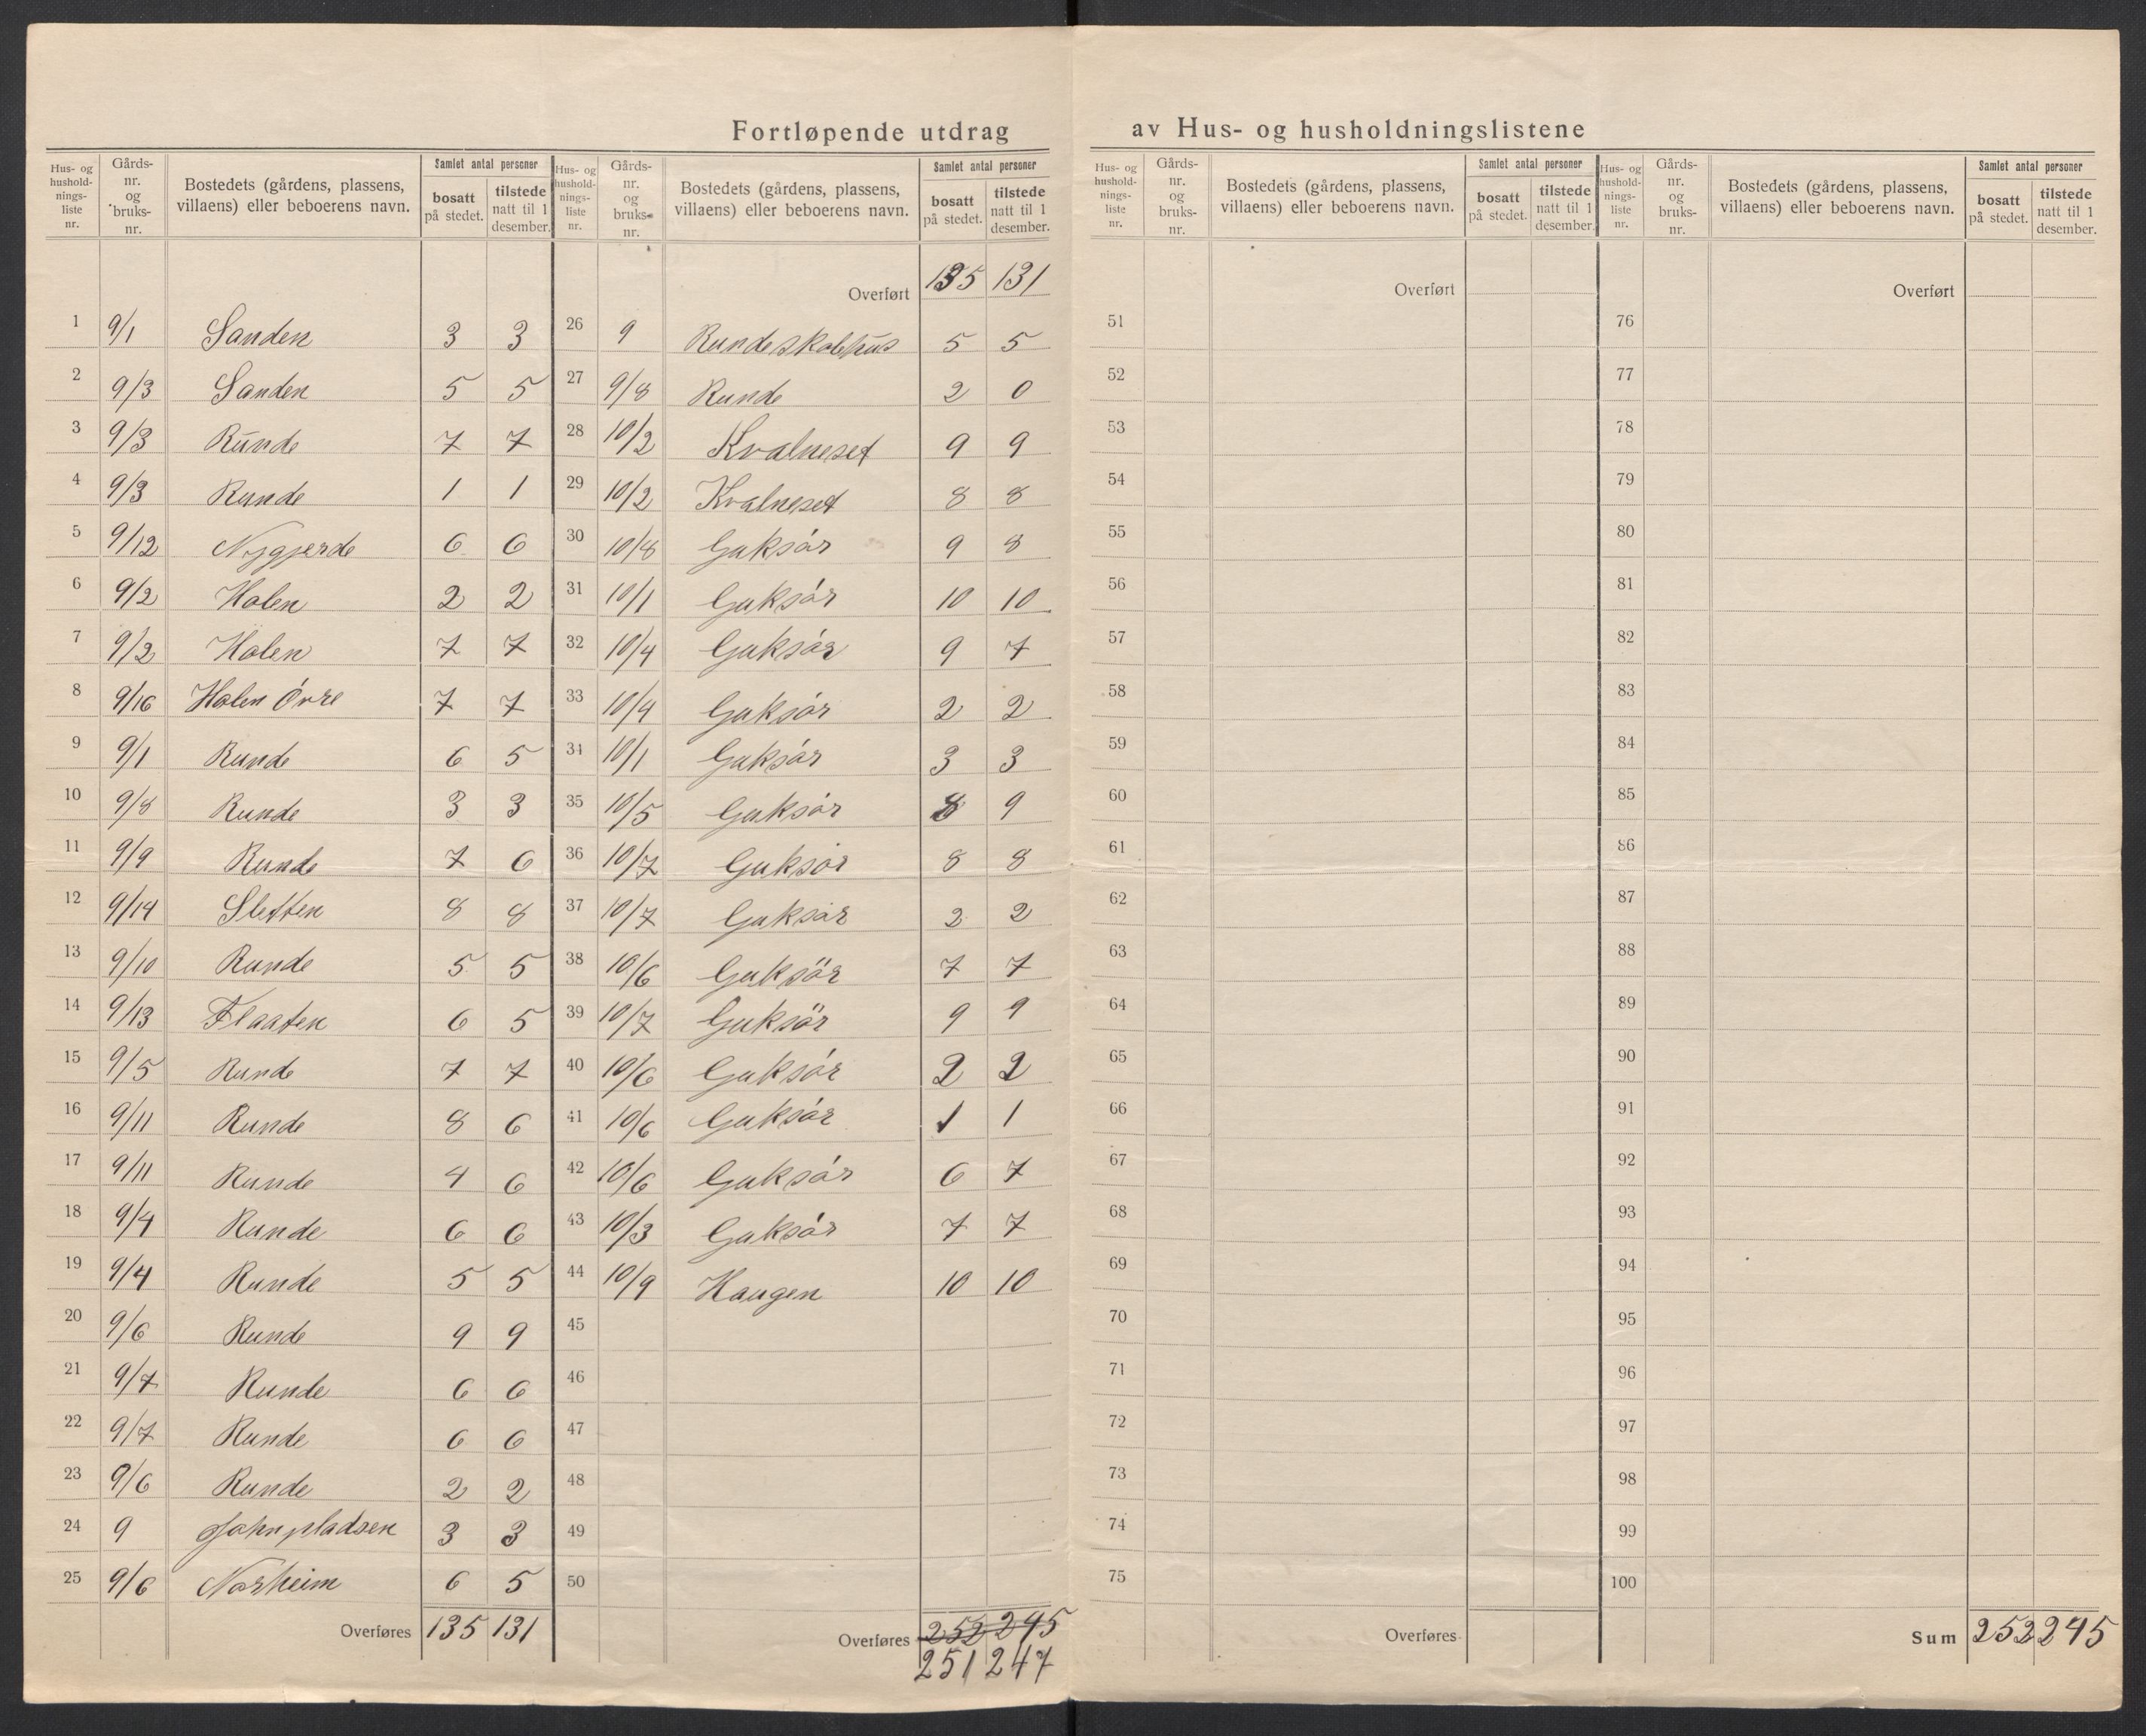 Fortløpende utdrag av Hus- og husholdningslistene
Hus- og husholdnings-liste nr. | Gårds-nr. og bruks-nr. | Bostedets (gårdens, plassens, villaens) eller beboerens navn. | Samlet antal personer | bosatt på stedet. | tilstede natt til 1 desember.
1 9/1 Sanden 3 3
2 9/3 Sanden 5 5
3 9/3 Runde 7 7
4 9/3 Runde 1 1
5 9/12 Nygjerde 6 6
6 9/2 Holen 2 2
7 9/2 Holen 7 7
8 9/16 Holen Övre 7 7
9 9/1 Runde 6 5
10 9/8 Runde 3 3
11 9/9 Runde 7 6
12 9/14 Sletten 8 8
13 9/10 Runde 5 5
14 9/13 Flaaten 6 5
15 9/5 Runde 7 7
16 9/11 Runde 8 6
17 9/11 Runde 4 6
18 9/4 Runde 6 6
19 9/4 Runde 5 5
20 9/6 Runde 9 9
21 9/7 Runde 6 6
22 9/7 Runde 6 6
23 9/6 Runde 2 2
24 9 Johnpladsen 3 3
25 9/6 Norheim 6 5
Overføres 135 131
Hus- og husholdnings-liste nr. | Gårds-nr. og bruks-nr. | Bostedets (gårdens, plassens, villaens) eller beboerens navn. | Samlet antal personer | bosatt på stedet. | tilstede natt til 1 desember.
Overført 135 131
26 9 Runde skolehus 5 5
27 9/8 Runde 2 0
28 10/2 Kvalneset 9 9
29 10/2 Kvalneset 8 8
30 10/8 Goksör 9 8
31 10/1 Goksör 10 10
32 10/4 Goksör 9 7
33 10/4 Goksör 2 2
34 10/1 Goksör 3 3
35 10/5 Goksör 8 9
36 10/7 Goksör 8 8
37 10/7 Goksör 2 2
38 10/6 Goksör 7 7
39 10/7 Goksör 9 9
40 10/6 Goksör 2 2
41 10/6 Goksör 1 1
42 10/6 Goksör 6 7
43 10/3 Goksör 7 7
44 10/9 Haugen 10 10
45
46
47
48
49
50
Overføres 252 245
251 247
Hus- og husholdnings-liste nr. | Gårds-nr. og bruks-nr. | Bostedets (gårdens, plassens, villaens) eller beboerens navn. | Samlet antal personer | bosatt på stedet. | tilstede natt til 1 desember.
Overført
51
52
53
54
55
56
57
58
59
60
61
62
63
64
65
66
67
68
69
70
71
72
73
74
75
Overføres
Hus- og husholdnings-liste nr. | Gårds-nr. og bruks-nr. | Bostedets (gårdens, plassens, villaens) eller beboerens navn. | Samlet antal personer | bosatt på stedet. | tilstede natt til 1 desember.
Overført
76
77
78
79
80
81
82
83
84
85
86
87
88
89
90
91
92
93
94
95
96
97
98
99
100
Sum 252 245